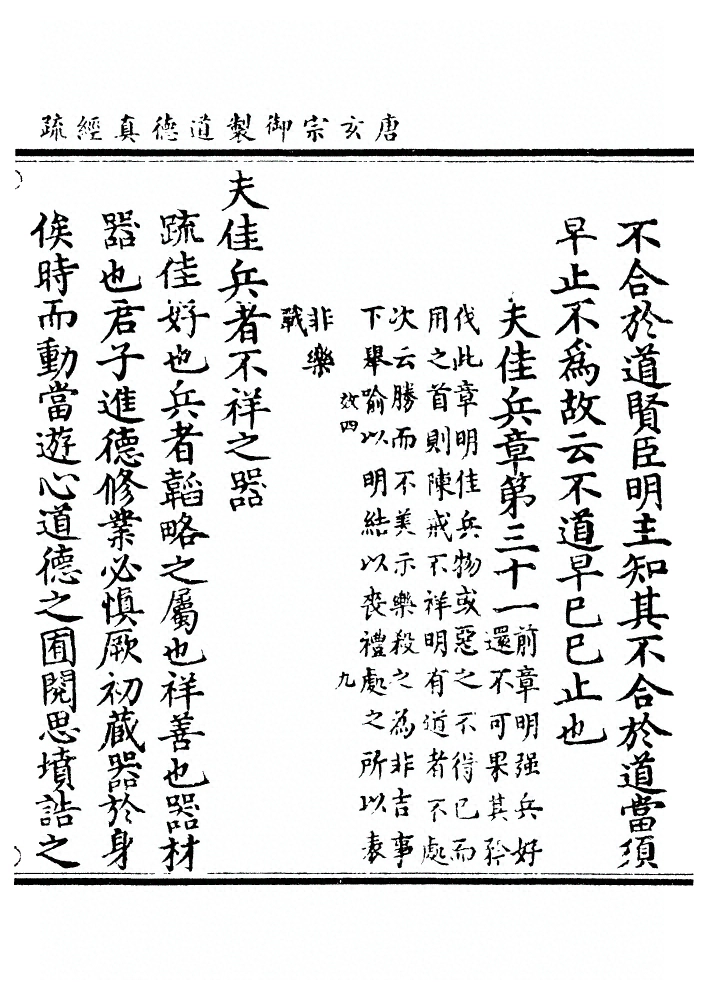 唐玄宗御製道德真經疏
不合於道賢臣明主知其不合於道當須
早止不爲故云不道早巳巳止也
夫佳兵章第三十一
前章明强兵好
還不可果其矜
伐此章明佳兵物或惡之不得已而
用之首則陳戒不祥明有道者不處
次云勝而不美示樂殺之為非吉事
下舉喻以明結以喪禮處之所以表
效四 九
非樂
戰
夫佳兵者不祥之器
疏佳好也兵者韜略之屬也祥善也器材
器也君子進德修業必慎厥初蔵器於身
俟時而動當遊心道德之囿閱思墳誥之